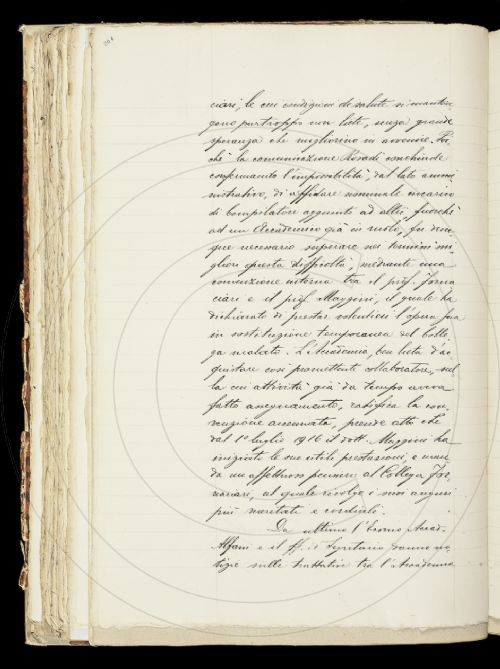 ciari, le cui condizioni di salute si manten
gono purtroppo non liete, senza grande
speranza che migliorino in avvenire. Poi,
chè la comunicazione Rosadi conchiude
confermando l'impossibilità, dal lato ammi
nistrativo, di affidare nominale incarico
di compilatore aggiunto ad altri, fuorchè
ad un Accademico già in ruolo, fu d'un
que necessario superare nei termini mi
gliori questa difficoltà, mediante una
convenzione interna tra il prof. Forna
ciari e il prof. Maggini, il quale ha
dichiarato di prestar volentieri l'opera sua
in sostituzione temporanea del Colle
ga malato. L'Accademia, ben lieta d'ac
quistare così promettente collaboratore, sul
la cui attività già da tempo aveva
fatto assegnamento, ratifica la con
venzione accennata, prende atto che
dal 1° luglio 1916 il dott. Maggini ha
iniziato le sue utili prestazioni, e man
da un affettuoso pensiero al Collega For
naciari, al quale rivolge i suoi auguri
più meritati e cordiali.
Da ultimo l'Econo Accad.
Alfani e il ff. di Segretario danno no
tizie sulle trattative tra l'Accademia